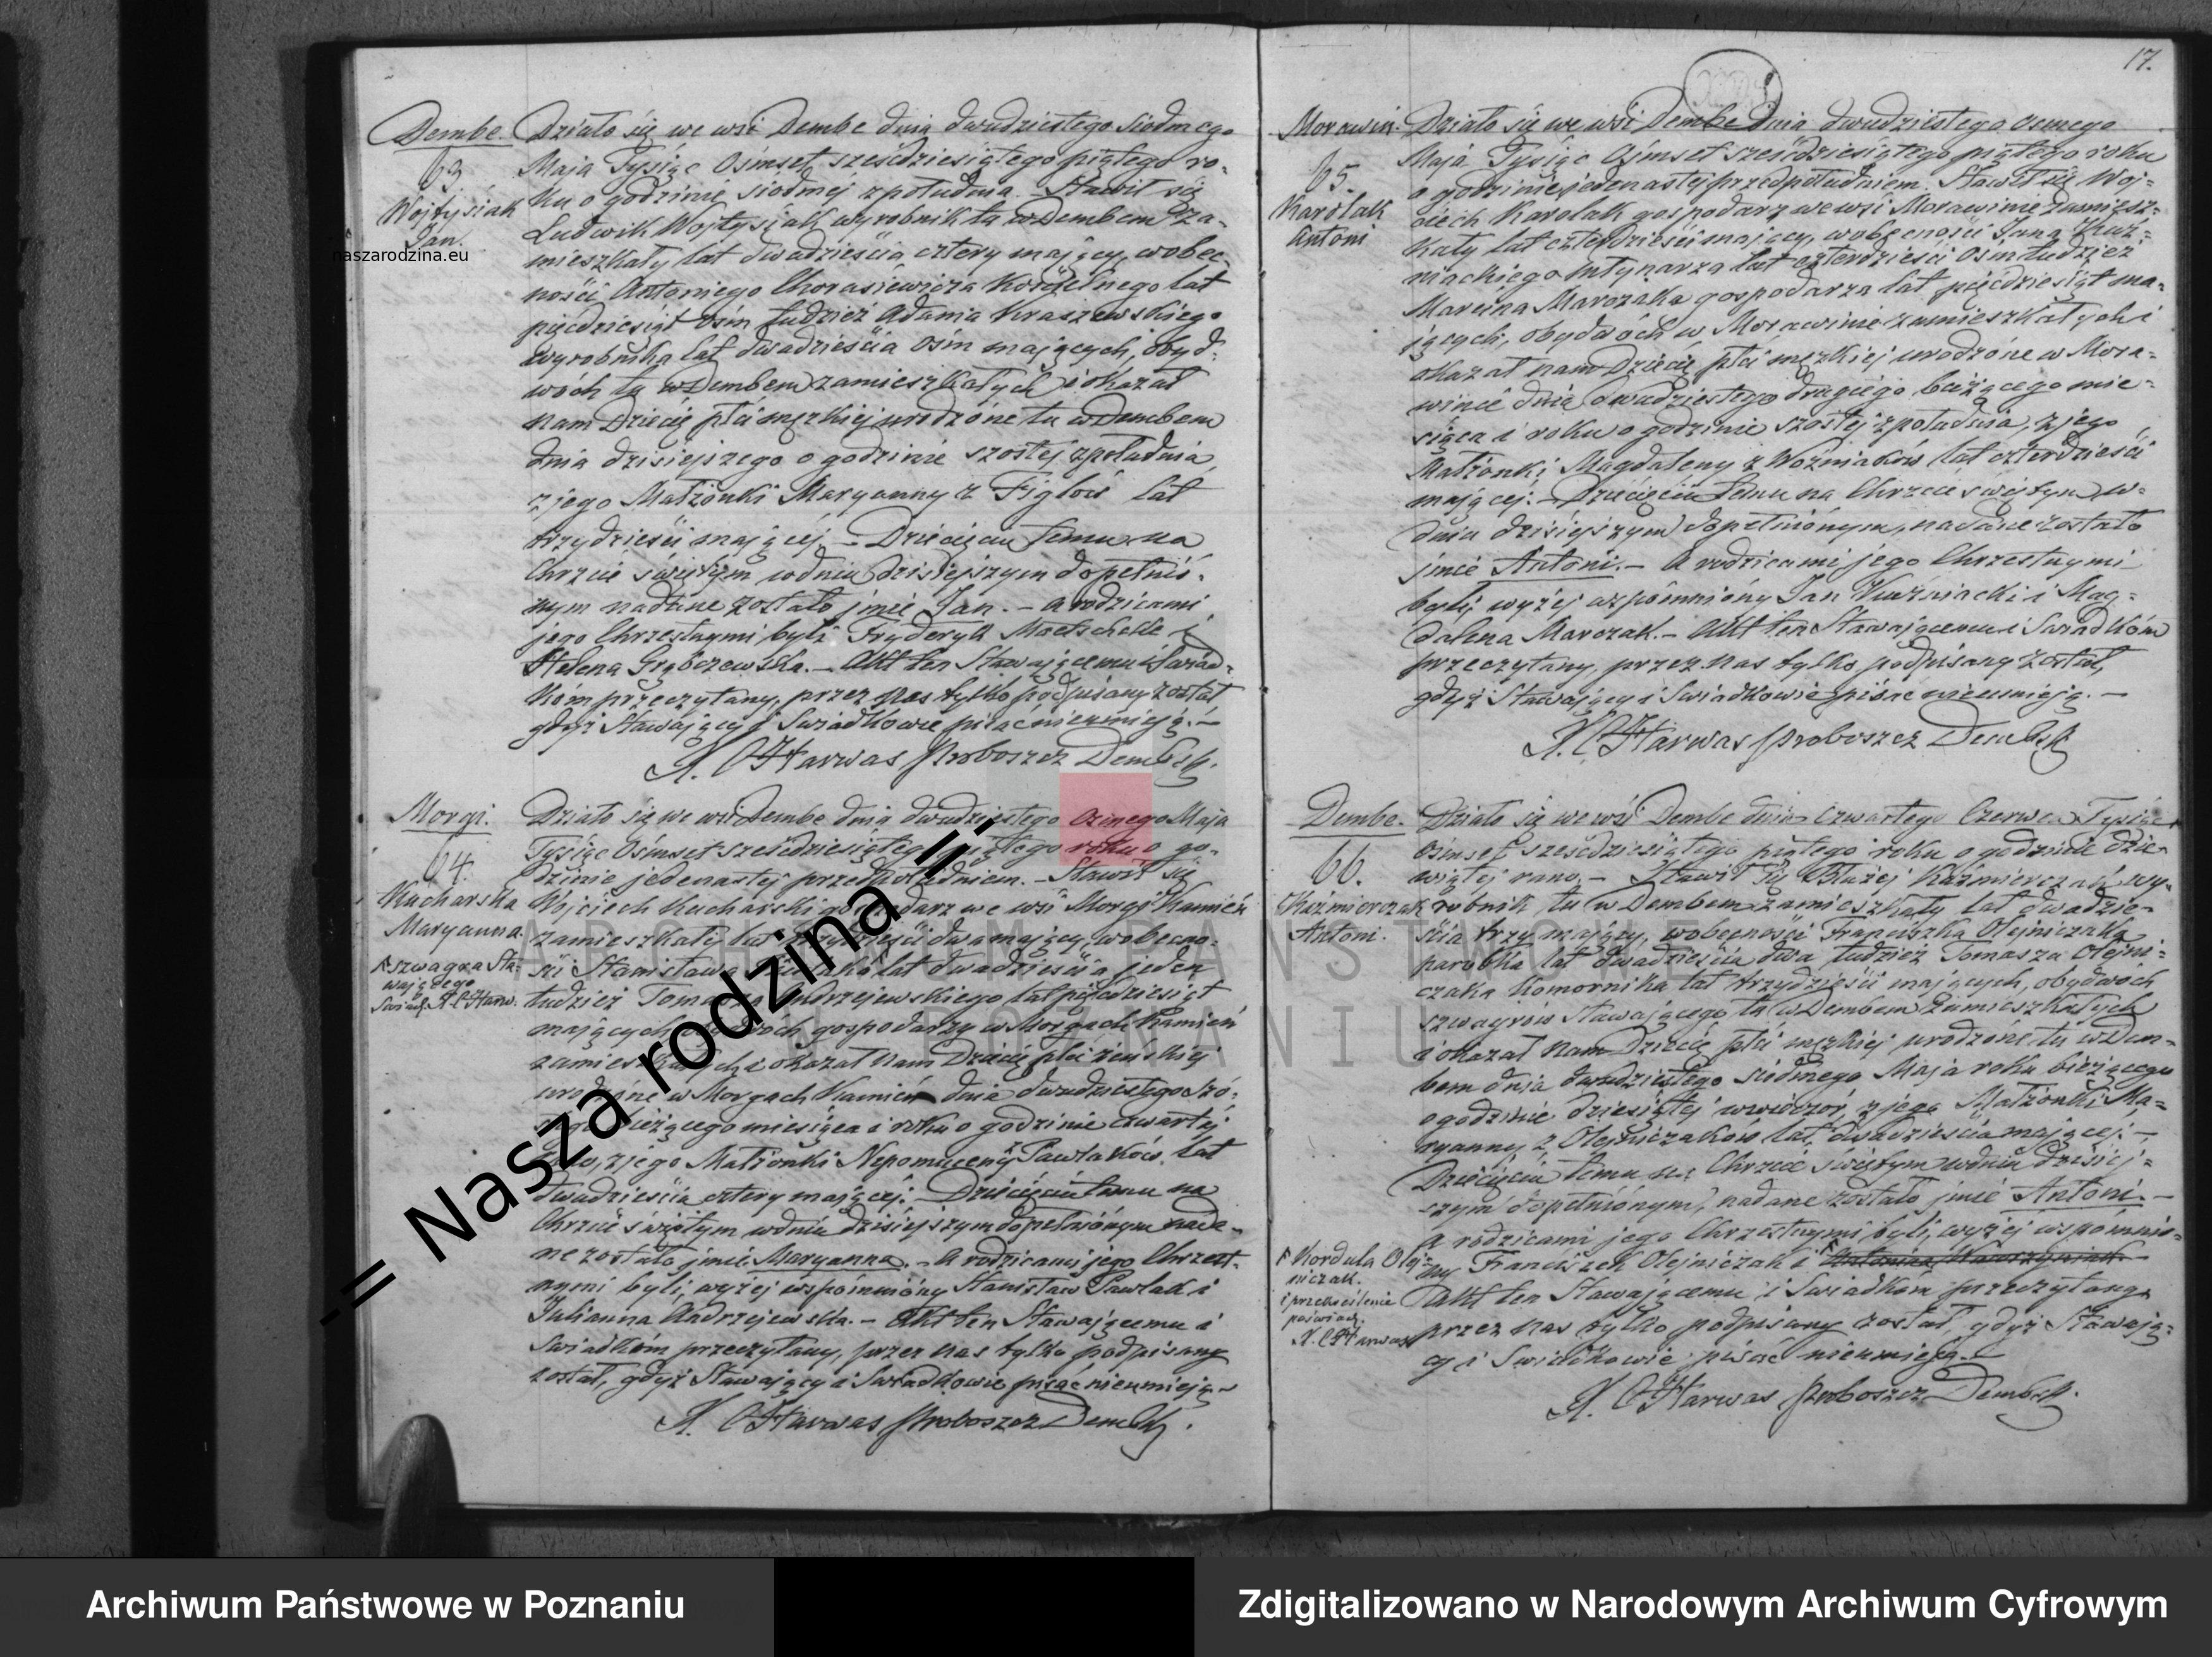 Dembe.
63
Wojtysiak
Jan.
naszarodzina.eu
Działo się we wsi Dembe dnia dwudziestego siódmego
Maja Tysiąc Osimset sześćdziesiątego piątego ro-
ku o godzinie siódmej z południa. Stawił się
Ludwik Wojtysiak wyrobnik tu w Dembem za-
mieszkały lat dwadzieścia cztery mający, w obec-
ności Antoniego Chorasiewicza Kościelnego lat
pięćdziesiąt osim tudzież Adama Kraszewskiego
wyrobnika lat dwadzieścia osim mających, obyd-
wóch tu w Dembem zamieszkałych i okazał
nam Dziecię płci męzkiej urodzone tu w Dembem
dnia dzisiejszego o godzinie szostej z południa
z jego Małżonki Maryanny z Figlów lat
trzydzieści mającej. – Dziecięciu temu na
Chrzcie świętym w dniu Dzisiejszym dopełnio-
nym nadane zostało jmie Jan. – a rodzicami
jego Chrzestnymi byli Fryderyk Maetschelle i
Helena Grąbczewska. – Akt ten Stawającemu i Świad-
kom przeczytany, przez nas tylko podpisany został
gdyż Stawający i Swiadkowie pisać nieumieją. –
X. C Harwas Proboszcz Dembsk.
Morgi.
64.
Kucharska
Maryanna.
szwagra Sta-
wającego
X. C Harw.
Działo się we wsi Dembe dnia dwudziestego osmego Maja
Tysiąc Osimset sześćdziesiątego piątego roku o go-
dzinie jedenastej przed południem. – Stawił się
Wojciech Kucharski gospodarz we wsi Morgi Kamień
zamieszkały lat trzydzieści dwa mający, w obecno-
ści Stanisława Pawlaka lat dwadzieścia jeden
tudzież Tomasza Andrzejewskiego lat pięćdziesiąt
mających obydwóch gospodarzy w Morgach Kamień
zamieszkałych i okazał nam Dziecię płci żeńskiej
urodzone w Morgach Kamień dnia dwudziestego szó-
stego bieżącego miesiąca i roku o godzinie czwartej
z jego Małżonki Nepomuceny z Pawlaków lat
dwadzieścia cztery mającej. – Dziecięciu temu na
Chrzcie świętym w dniu dzisiejszym dopełnionym nada-
ne zostało jmie Maryanna. – A rodzicami jego Chrzest-
nymi byli, wyżej wspómniony Stanisław Pawlak i
Julianna Andrzejewska. – Akt ten Stawającemu i
Swiadkóm przeczytany, przez nas tylko podpisany
został, gdyż Stawający i Swiadkowie pisać nieumieją. –
X. C Harwas Proboszcz Dembsk.
17.
Morawin.
65.
Karolak
Antoni
Działo się we wsi Dembe Dnia dwudziestego osmego
Maja Tysiąc Osimset sześćdziesiątego piątego roku
o godzinie jedenastej przed południem. Stawił się Woj-
ciech Karolak gospodarz we wsi Morawinie zamiesz-
kały lat czterdzieści mający, w obecności Jana Kuź-
niackiego młynarza lat czterdzieści osim tudzież
Marcina Marczaka gospodarza lat pięćdziesiąt ma-
jących, obydwóch w Morawinie zamieszkałych i
okazał nam Dziecię płci męzkiej urodzone w Mora-
winie dnia dwudziestego drugiego bieżącego mie-
siąca i roku o godzinie szostej z południa, z jego
Małżonki Magdaleny z Woźniaków lat czterdzieści
mającej. – Dziecięciu temu na Chrzcie świętym w
dniu dzisiejszym dopełnionym, nadane zostało
jmie Antoni. – A rodzicami jego Chrzestnymi
byli, wyżej wspómniony Jan Kuźniacki i Mag-
dalena Marczak. – Akt ten Stawającemu i Swiadkóm
przeczytany, przez nas tylko podpisany został,
gdyż Stawający i Swiadkowie pisać nieumieją. –
X. C Harwas Proboszcz Dembsk
Dembe.
66.
Kaźmierczak
Antoni.
Kordula Olej-
niczak.
i przekreślenie
poświad.
X. C Harwas
Działo się we wsi Dembe dnia Czwartego Czerwca Tysiąc
Osimset sześćdziesiątego piątego roku o godzinie dzie-
wiątej rano. – Stawił się Błażej Kaźmierczak wy-
robnik tu w Dembem zamieszkały lat dwadzie-
ścia trzy mający, w obecności Franciszka Olejniczaka
parobka lat dwadzieścia dwa tudzież Tomasza Olejni-
czaka Komornika lat trzydzieści mających, obydwóch
szwagrów Stawającego tu w Dembem zamieszkałych
i okazał nam Dziecię płci męzkiej urodzone tu w Dem-
bem dnia dwudziestego siódmego Maja roku bieżącego
o godzinie dziesiątej w wieczór, z jego Małżonki Ma-
ryanny z Olejniczaków lat dwadzieścia mającej. –
Dziecięciu temu na Chrzcie Świętym w dniu dzisiej-
szym dopełnionym, nadane zostało jmie Antoni. –
A rodzicami jego Chrzestnymi byli, wyżej wspómnio-
ny Franciszek Olejniczak i
Akt ten Stawającemu i Swiadkóm przeczytany
przez nas tylko podpisany został, gdyż Stawają-
cy i Swiadkowie pisać nieumieją. –
X. C Harwas Proboszcz Dembsk.
-= Nasza rodzina =-
ARCHIWUM PAŃSTWOWE
W POZNANIU
Archiwum Państwowe w Poznaniu
Zdigitalizowano w Narodowym Archiwum Cyfrowym